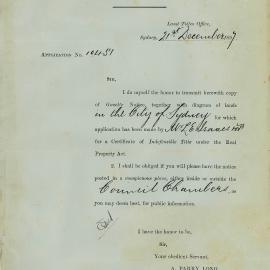 Land Titles Office,
Sydney, 21st December 1887
APPLICATION No. 19451
SIR,
I do myself the honor to transmit herewith copy
of Gazette Notice, together with diagram of lands
in the City of Sydney for which
application has been made by
for a Certificate of Indefeasible Title under the Real
Property Act.
2. I shall be obliged if you will please have the notice
posted in a conspicuous place, either inside or outside the
Council Chambers, as
you may deem best, for public information.
I have the honor to be,
Sir,
Your obedient Servant,
A. PARRY LONG